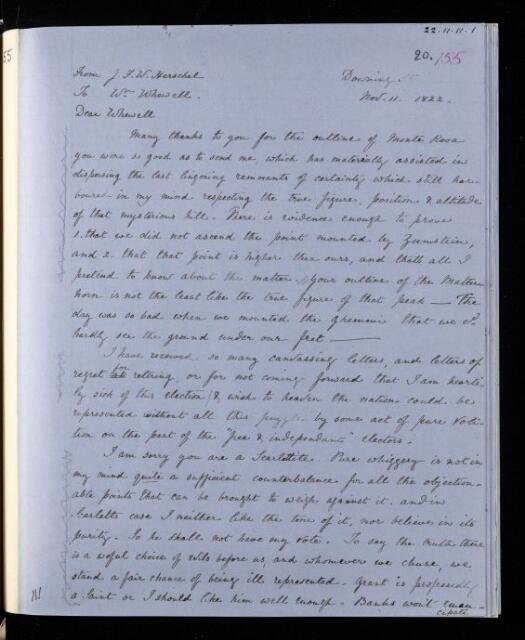 22.11.11.1
55
20. 155
From J. F. W. Herschel
Downing St
To Wm Whewell.
Nov. 11. 1822.
Dear Whewell
Many thanks to you for the outline of Monte Rosa
you were so good as to send me, which has materially assisted in
disposing the last lingering remnants of certainty which still har-
boured in my mind respecting the true figure, position & altitude
of that mysterious hill. Here is evidence enough to prove
1. that we did not ascend the point mounted by Zumstein,
and 2. that that point is higher than ours, and thats all I
pretend to know about the matter. Your outline of the Matter-
horn is not the least like the true figure of that peak — The
day was so bad when we mounted the Ghemmi that we cd
hardly see the ground under our feet —
I have received so many canvassing letters, and letters of
regret for retiring, or for not coming forward that I am hearti-
ly sick of this election, & wish to heaven the nation could be
represented without all this by some act of pure voli-
tion on the part of the "free & independant" electors.
I am sorry you are a Scarlettite. Pure whiggery is not in
my mind quite a sufficient counterbalance for all the objection-
able points that can be brought to weigh against it. and in
Scarletts case I neither like the tone of it, nor believe in its
purity. So he shall not have my vote. To say the truth there
is a woful choice of evils before us, and whomever we chuse, we
stand a fair chance of being ill represented. Grant is professedly
a Saint or I should like him well enough. Banks won't eman-
cipate